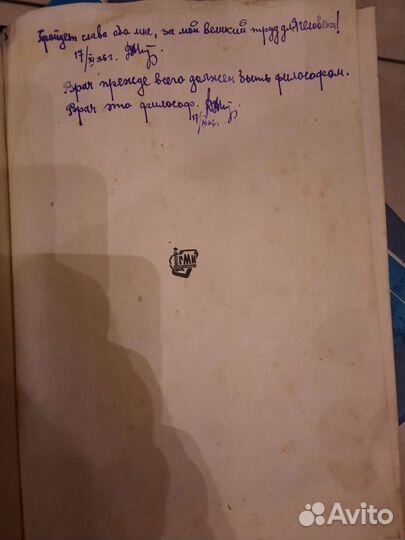 Пройдет слава обо мне, за мой великий труд для человека!
17/XI 36г.
Врач прежде всего должен быть философом.
Врач это философ.
17/XI 36г.
Avito